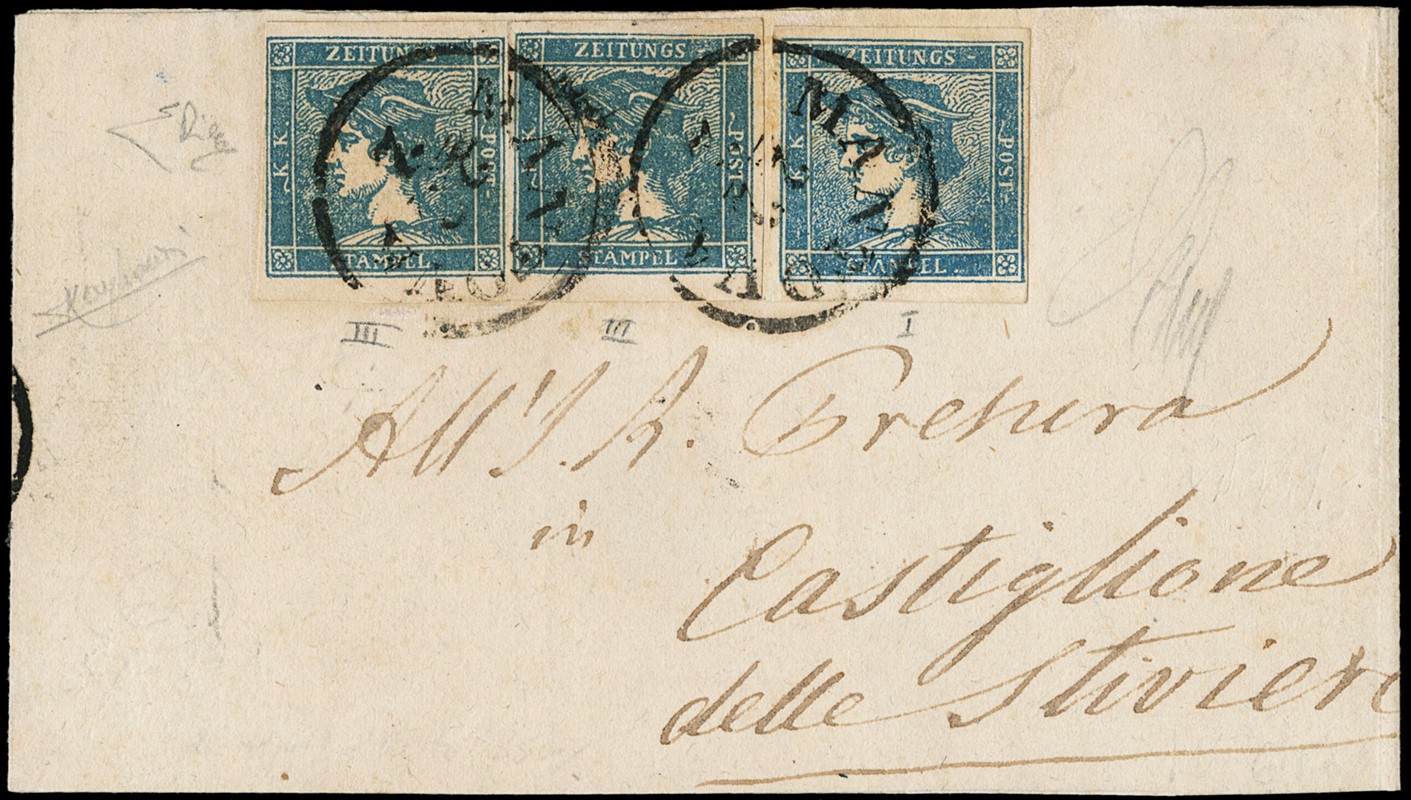 ZEITUNGS
K. K.
POST
STAMPEL
ZEITUNGS
POST
STAMPEL
ZEITUNGS-
K. K.
POST-
STAMPEL.
MANTOVA
MANTOVA
III
III
I
All'I. R. Pretura
in
Castiglione
delle Stiviere